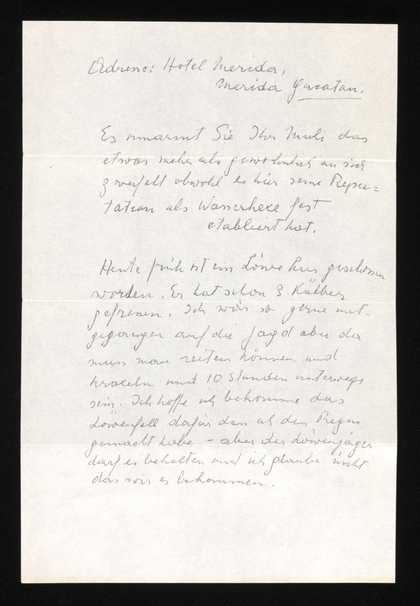 Adresse: Hotel Merida,
Merida Yucatan.
Es umarmt Sie Ihr Muli das
etwas mehr als gewöhnlich an sich
zweifelt obwohl es hier seine Repu-
tation als Wasserhexe fest
etabliert hat.
Heute früh ist ein Löwe hier geschossen
worden. Er hat schon 3 Kälber
gefressen. Ich wär so gerne mit-
gegangen auf die Jagd aber da
muss man reiten können und
kraxeln und 10 Stunden unterwegs
sein. Ich hoffe ich bekomme das
Löwenfell dafür dass ich den Regen
gemacht habe – aber der Löwenjäger
darf es behalten und ich glaube nicht
das wir es bekommen.